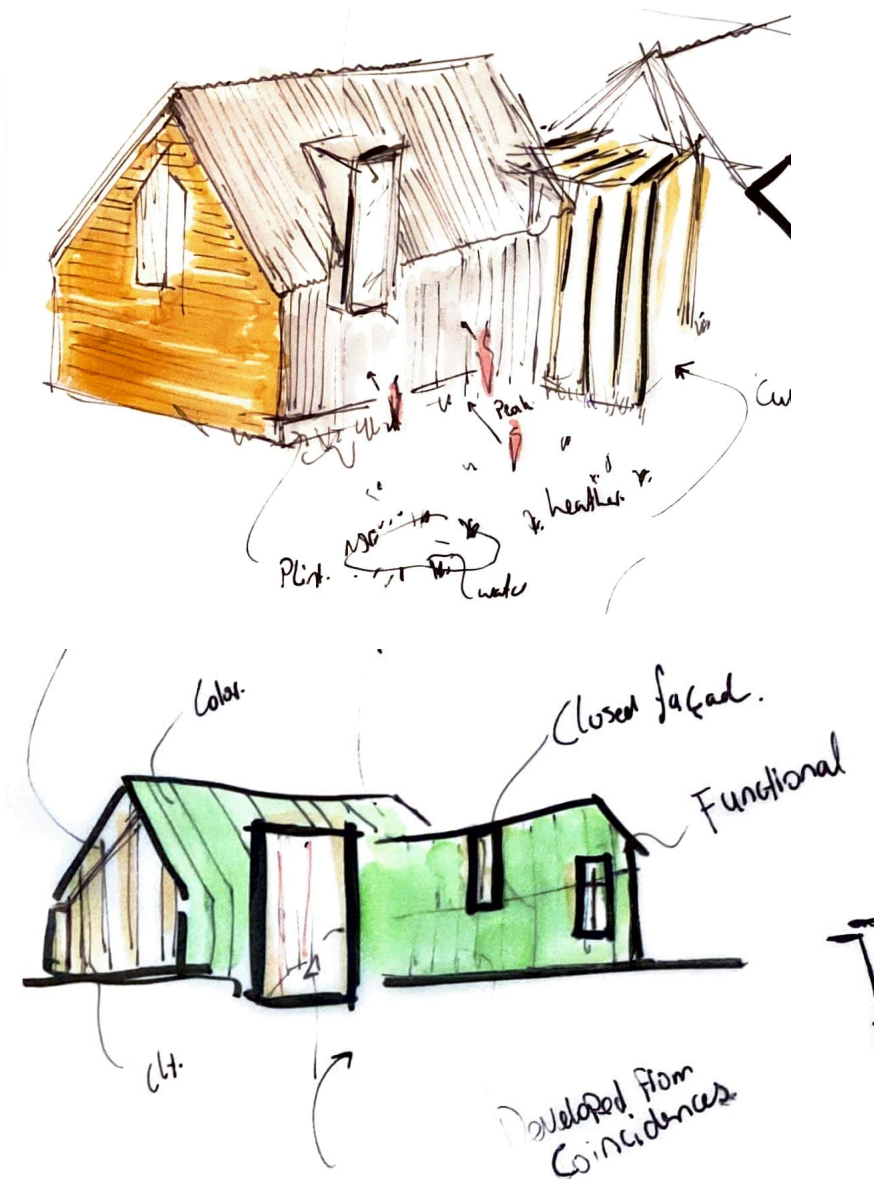 Peak
heather.
Plint.
water
Color.
Closed façad.
Functional
Clt.
Developed from
Coincidences